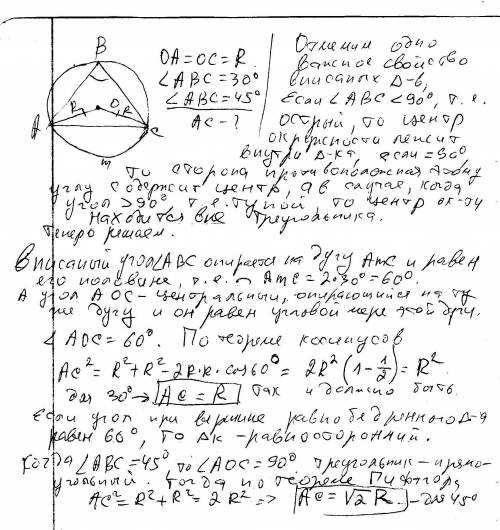 B
OA=OC=R.
∠ABC=30°
∠ABC=45°
AC-?
A
R
O
R
C
m
Отметим одно
важное свойство
вписаных Δ-в,
если ∠ABC<90°, т.е.
острый, то центр
окружности лежит
внутри Δ-ка, если =90°
то сторона противоположная этому
углу содержит центр, а в случае, когда
угол >90° т.е. тупой, то центр ок-ти
находится вне треугольника.
Теперь решаем.
Вписаный угол ∠ABC опирается на дугу AmC и равен
его половине, т.е. ◡ AmC = 2·30°=60°.
А угол AOC - центральный, опирающийся на ту
же дугу и он равен угловой мере этой дуги.
∠AOC=60°. По теореме косинусов
AC²=R²+R²-2R·R·cos60°=2R²(1-1/2)=R².
для 30° → AC=R Так и должно быть.
Если угол при вершине равнобедренного Δ-а
равен 60°, то Δк - равносторонний.
Когда ∠ABC=45°, то ∠AOC=90° треугольник - прямо-
угольный. Тогда по теореме Пифагора
AC²=R²+R²=2R² => AC=√2R. - для 45°